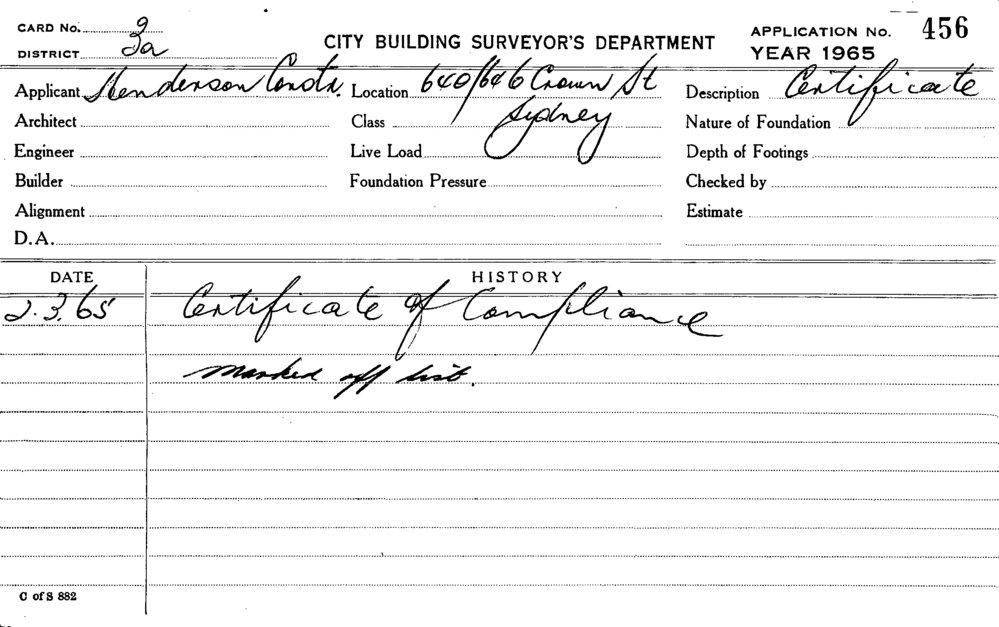 CARD No. 2
DISTRICT 3a
CITY BUILDING SURVEYOR'S DEPARTMENT
APPLICATION No. 456
YEAR 1965
Applicant Henderson Constr. Location 640/646 Crown St Description Certificate
Architect Class Sydney Nature of Foundation
Engineer Live Load Depth of Footings
Builder Foundation Pressure Checked by
Alignment Estimate
D.A.
DATE HISTORY
2.3.65 Certificate of Compliance
marked off list.
C of S 882